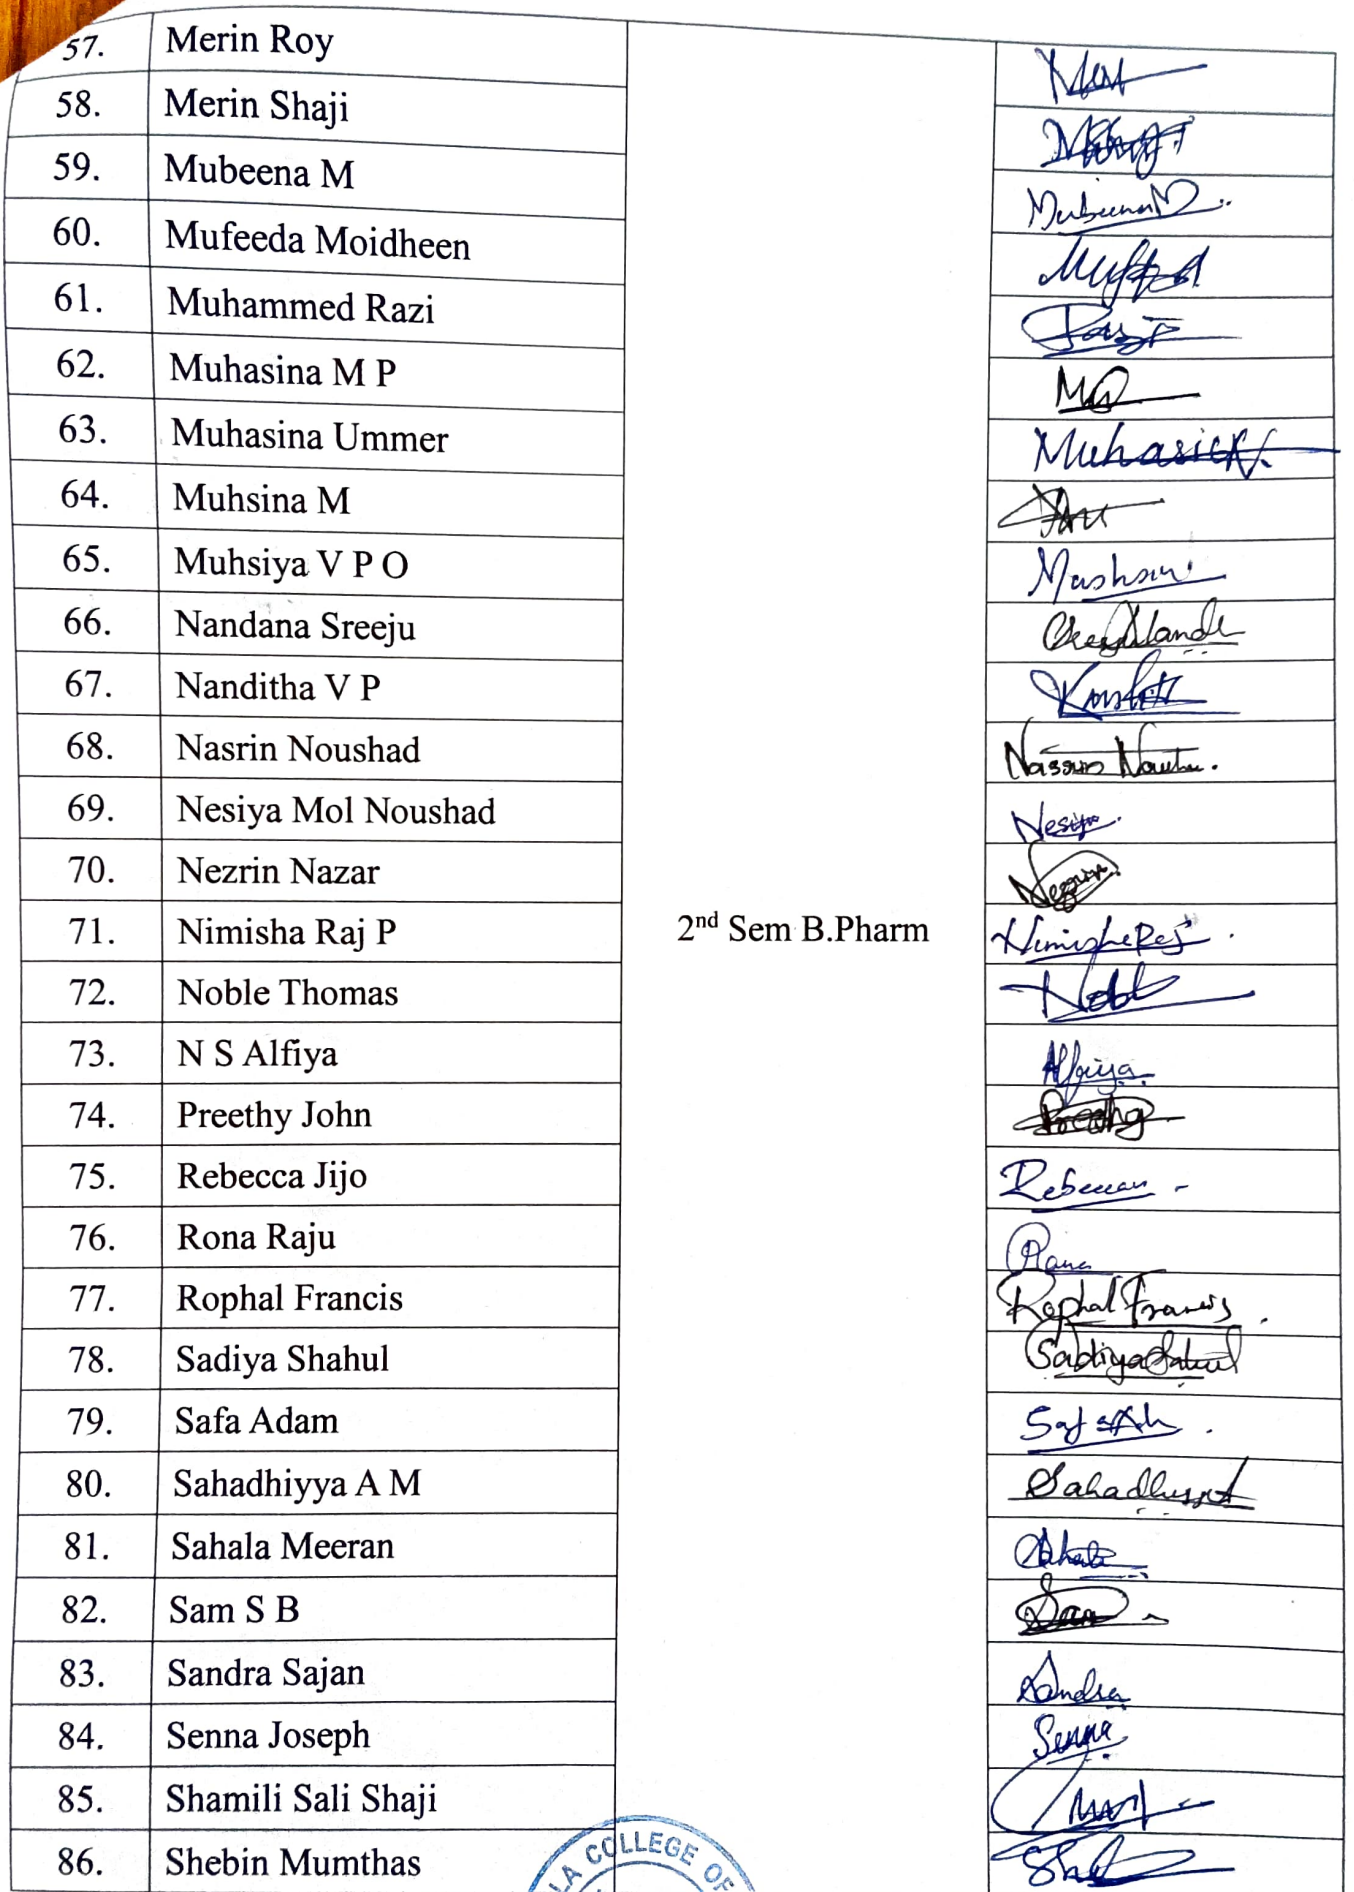 57. Merin Roy
58. Merin Shaji
59. Mubeena M Mubeena M
60. Mufeeda Moidheen
61. Muhammed Razi Razi
62. Muhasina M P
63. Muhasina Ummer
64. Muhsina M
65. Muhsiya V P O
66. Nandana Sreeju
67. Nanditha V P
68. Nasrin Noushad
69. Nesiya Mol Noushad Nesiya
70. Nezrin Nazar
71. Nimisha Raj P 2nd Sem B.Pharm Nimisha Raj
72. Noble Thomas Noble
73. N S Alfiya Alfiya
74. Preethy John
75. Rebecca Jijo
76. Rona Raju Rona
77. Rophal Francis Rophal Francis
78. Sadiya Shahul
79. Safa Adam
80. Sahadhiyya A M
81. Sahala Meeran
82. Sam S B Sam
83. Sandra Sajan Sandra
84. Senna Joseph Senna
85. Shamili Sali Shaji
86. Shebin Mumthas
LA COLLEGE OF